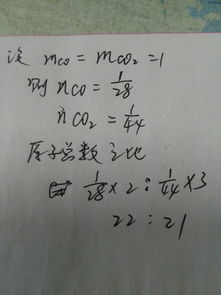 设 mco = mco₂ = 1
则 nco = 1/28
nco₂ = 1/44
原子总数之比
1/28 × 2 : 1/44 × 3
22 : 21